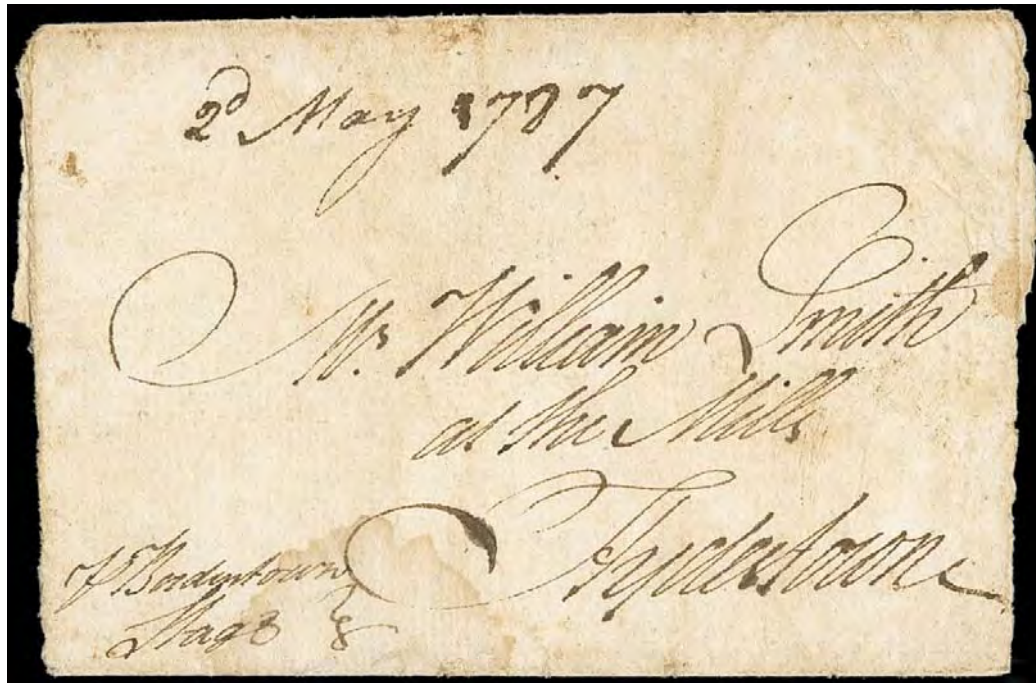 2d May 1787
Mr. William Smith
at the Mills
Hydestown
Bordentown
Stage